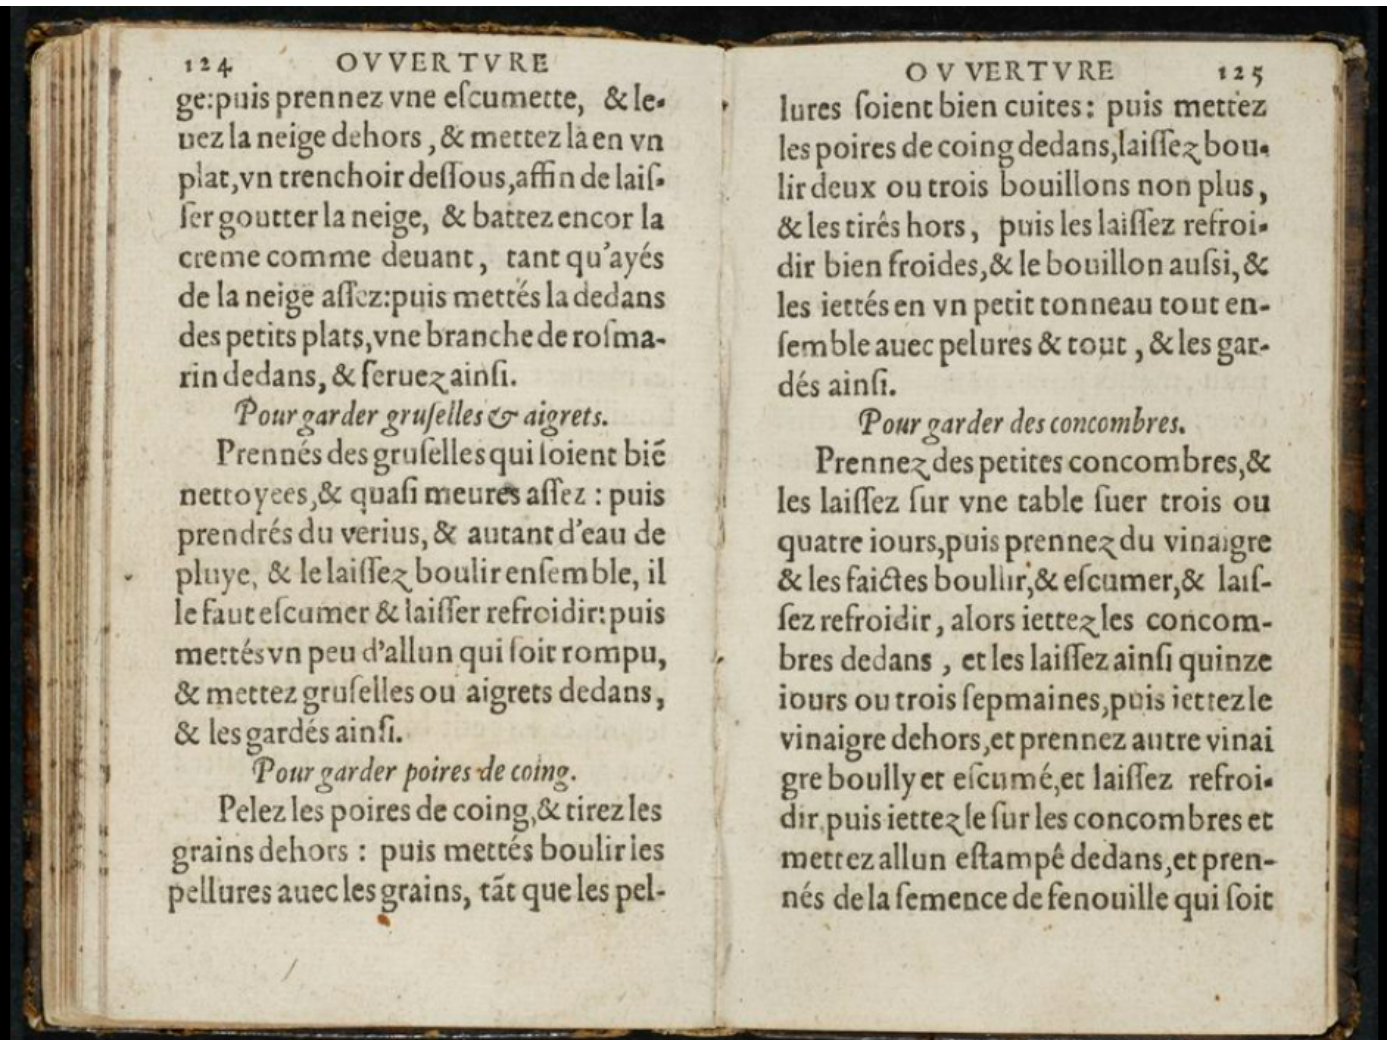 124 OVVERTVRE
ge:puis prennez vne eſcumette, & le-
uez la neige dehors, & mettez la en vn
plat, vn trenchoir deſſous, affin de laiſ-
ſer goutter la neige, & battez encor la
creme comme deuant, tant qu'ayés
de la neige aſſez: puis mettés la dedans
des petits plats, vne branche de roſma-
rin dedans, & ſeruez ainſi.
Pour garder gruſelles & aigrets.
Prennés des gruſelles qui ſoient biē
nettoyees, & quaſi meures aſſez : puis
prendrés du verius, & autant d'eau de
pluye, & le laiſſez boulir enſemble, il
le faut eſcumer & laiſſer refroidir: puis
mettés vn peu d'allun qui ſoit rompu,
& mettez gruſelles ou aigrets dedans,
& les gardés ainſi.
Pour garder poires de coing.
Pelez les poires de coing, & tirez les
grains dehors : puis mettés boulir les
pellures auec les grains, tāt que les pel-
OVVERTVRE 125
lures ſoient bien cuites: puis mettez
les poires de coing dedans, laiſſez bou-
lir deux ou trois bouillons non plus,
& les tirês hors, puis les laiſſez refroi-
dir bien froides, & le bouillon auſsi, &
les iettés en vn petit tonneau tout en-
ſemble auec pelures & tout, & les gar-
dés ainſi.
Pour garder des concombres.
Prennez des petites concombres, &
les laiſſez ſur vne table ſuer trois ou
quatre iours, puis prennez du vinaigre
& les faictes boullir, & eſcumer, & laiſ-
ſez refroidir, alors iettez les concom-
bres dedans, et les laiſſez ainſi quinze
iours ou trois ſepmaines, puis iettez le
vinaigre dehors, et prennez autre vinai
gre boully et eſcumé, et laiſſez refroi-
dir, puis iettez le ſur les concombres et
mettez allun eſtampê dedans, et pren-
nés de la ſemence de fenouille qui ſoit